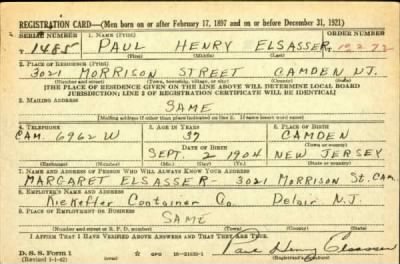 REGISTRATION CARD—(Men born on or after February 17, 1897 and on or before December 31, 1921)
SERIAL NUMBER 1. NAME (Print) ORDER NUMBER
T 1485 PAUL HENRY ELSASSER 10272
(First) (Middle) (Last)
2. PLACE OF RESIDENCE (Print)
3021 MORRISON STREET CAMDEN N.J.
(Number and street) (Town, township, village, or city) (County) (State)
[THE PLACE OF RESIDENCE GIVEN ON THE LINE ABOVE WILL DETERMINE LOCAL BOARD
JURISDICTION; LINE 2 OF REGISTRATION CERTIFICATE WILL BE IDENTICAL]
3. MAILING ADDRESS
SAME
[Mailing address if other than place indicated on line 2. If same insert word same]
4. TELEPHONE 5. AGE IN YEARS 6. PLACE OF BIRTH
CAM. 6962 W 37 CAMDEN
DATE OF BIRTH (Town or county)
SEPT. 2 1904 NEW JERSEY
(Exchange) (Number) (Mo.) (Day) (Yr.) (State or country)
7. NAME AND ADDRESS OF PERSON WHO WILL ALWAYS KNOW YOUR ADDRESS
MARGARET ELSASSER - 3021 MORRISON St. CAM.
8. EMPLOYER'S NAME AND ADDRESS
Kieckefer Container Co. Delair N.J.
9. PLACE OF EMPLOYMENT OR BUSINESS
SAME
(Number and street or R. F. D. number) (Town) (County) (State)
I AFFIRM THAT I HAVE VERIFIED ABOVE ANSWERS AND THAT THEY ARE TRUE.
D. S. S. Form 1
(Revised 1-1-42) GPO 16-21630-1 Paul Henry Elsasser
(Registrant's signature)